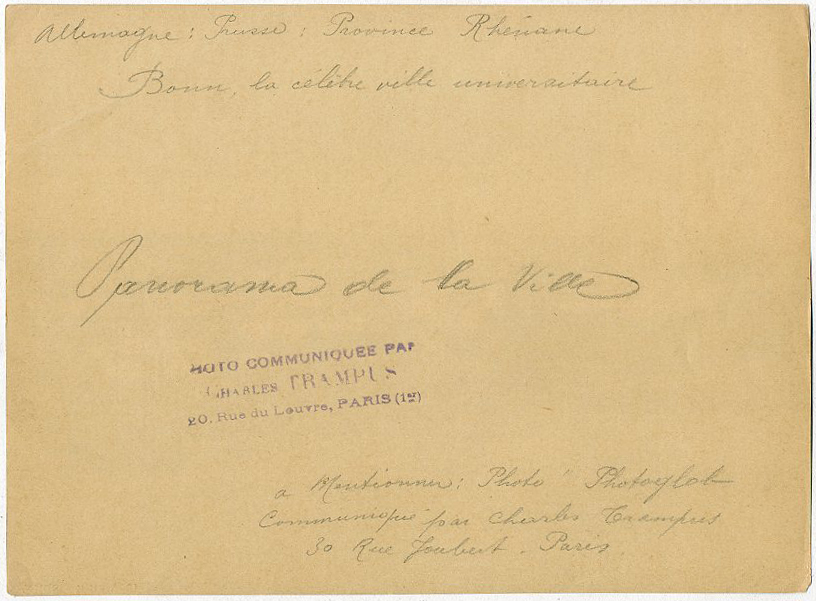 Allemagne : Prusse : Province Rhénane
Bonn, la célèbre ville universitaire
Panorama de la Ville
HOTO COMMUNIQUÉE PAR
CHARLES TRAMPUS
20, Rue du Louvre, PARIS (1er)
a Mentionner : Photo " Photoglob
Communiqué par Charles Trampus
30 Rue Joubert . Paris